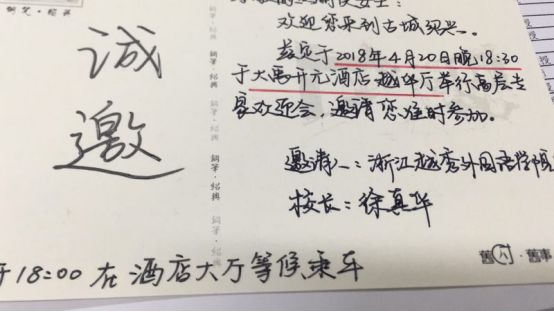 诚
邀
欢迎您来到古城绍兴。
兹定于2018年4月20日晚18:30
于大禹开元酒店越华厅举行高层专
家欢迎会,邀请您准时参加。
邀请人:浙江越秀外国语学院
校长:徐真华
18:00在酒店大厅等候乘车
舊 舊事